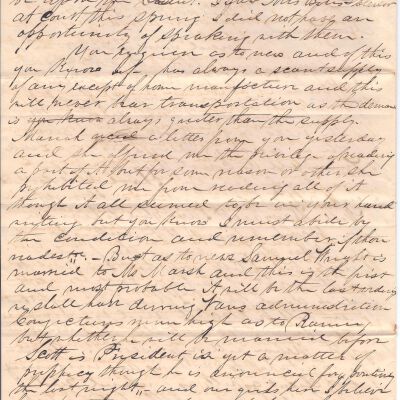 at Court this spring I did not pass an
opportunity of speaking with them.
You enquire as to news and of this
you know has always a scant supply
of any except of home manufacture and this
will never bear transportation as the demand
is always greater than the supply
Mariah a letter from you yesterday
and she offered me the privilege of reading
a part of it but for some reason or other she
prohibited me from reading all of it
though it all seemed to be in your hand
writing but you know I must abide by
the condition and remember if thou
readest - But as to news Samuel Wright is
married to Ms Marsh and this is the first
and most probable it will be the last wedding
we shall have during administration
conjectures run high as to
but whether will be married before
Scott is President is yet a matter of
prophecy though he is announced for
the last night - and our I believe